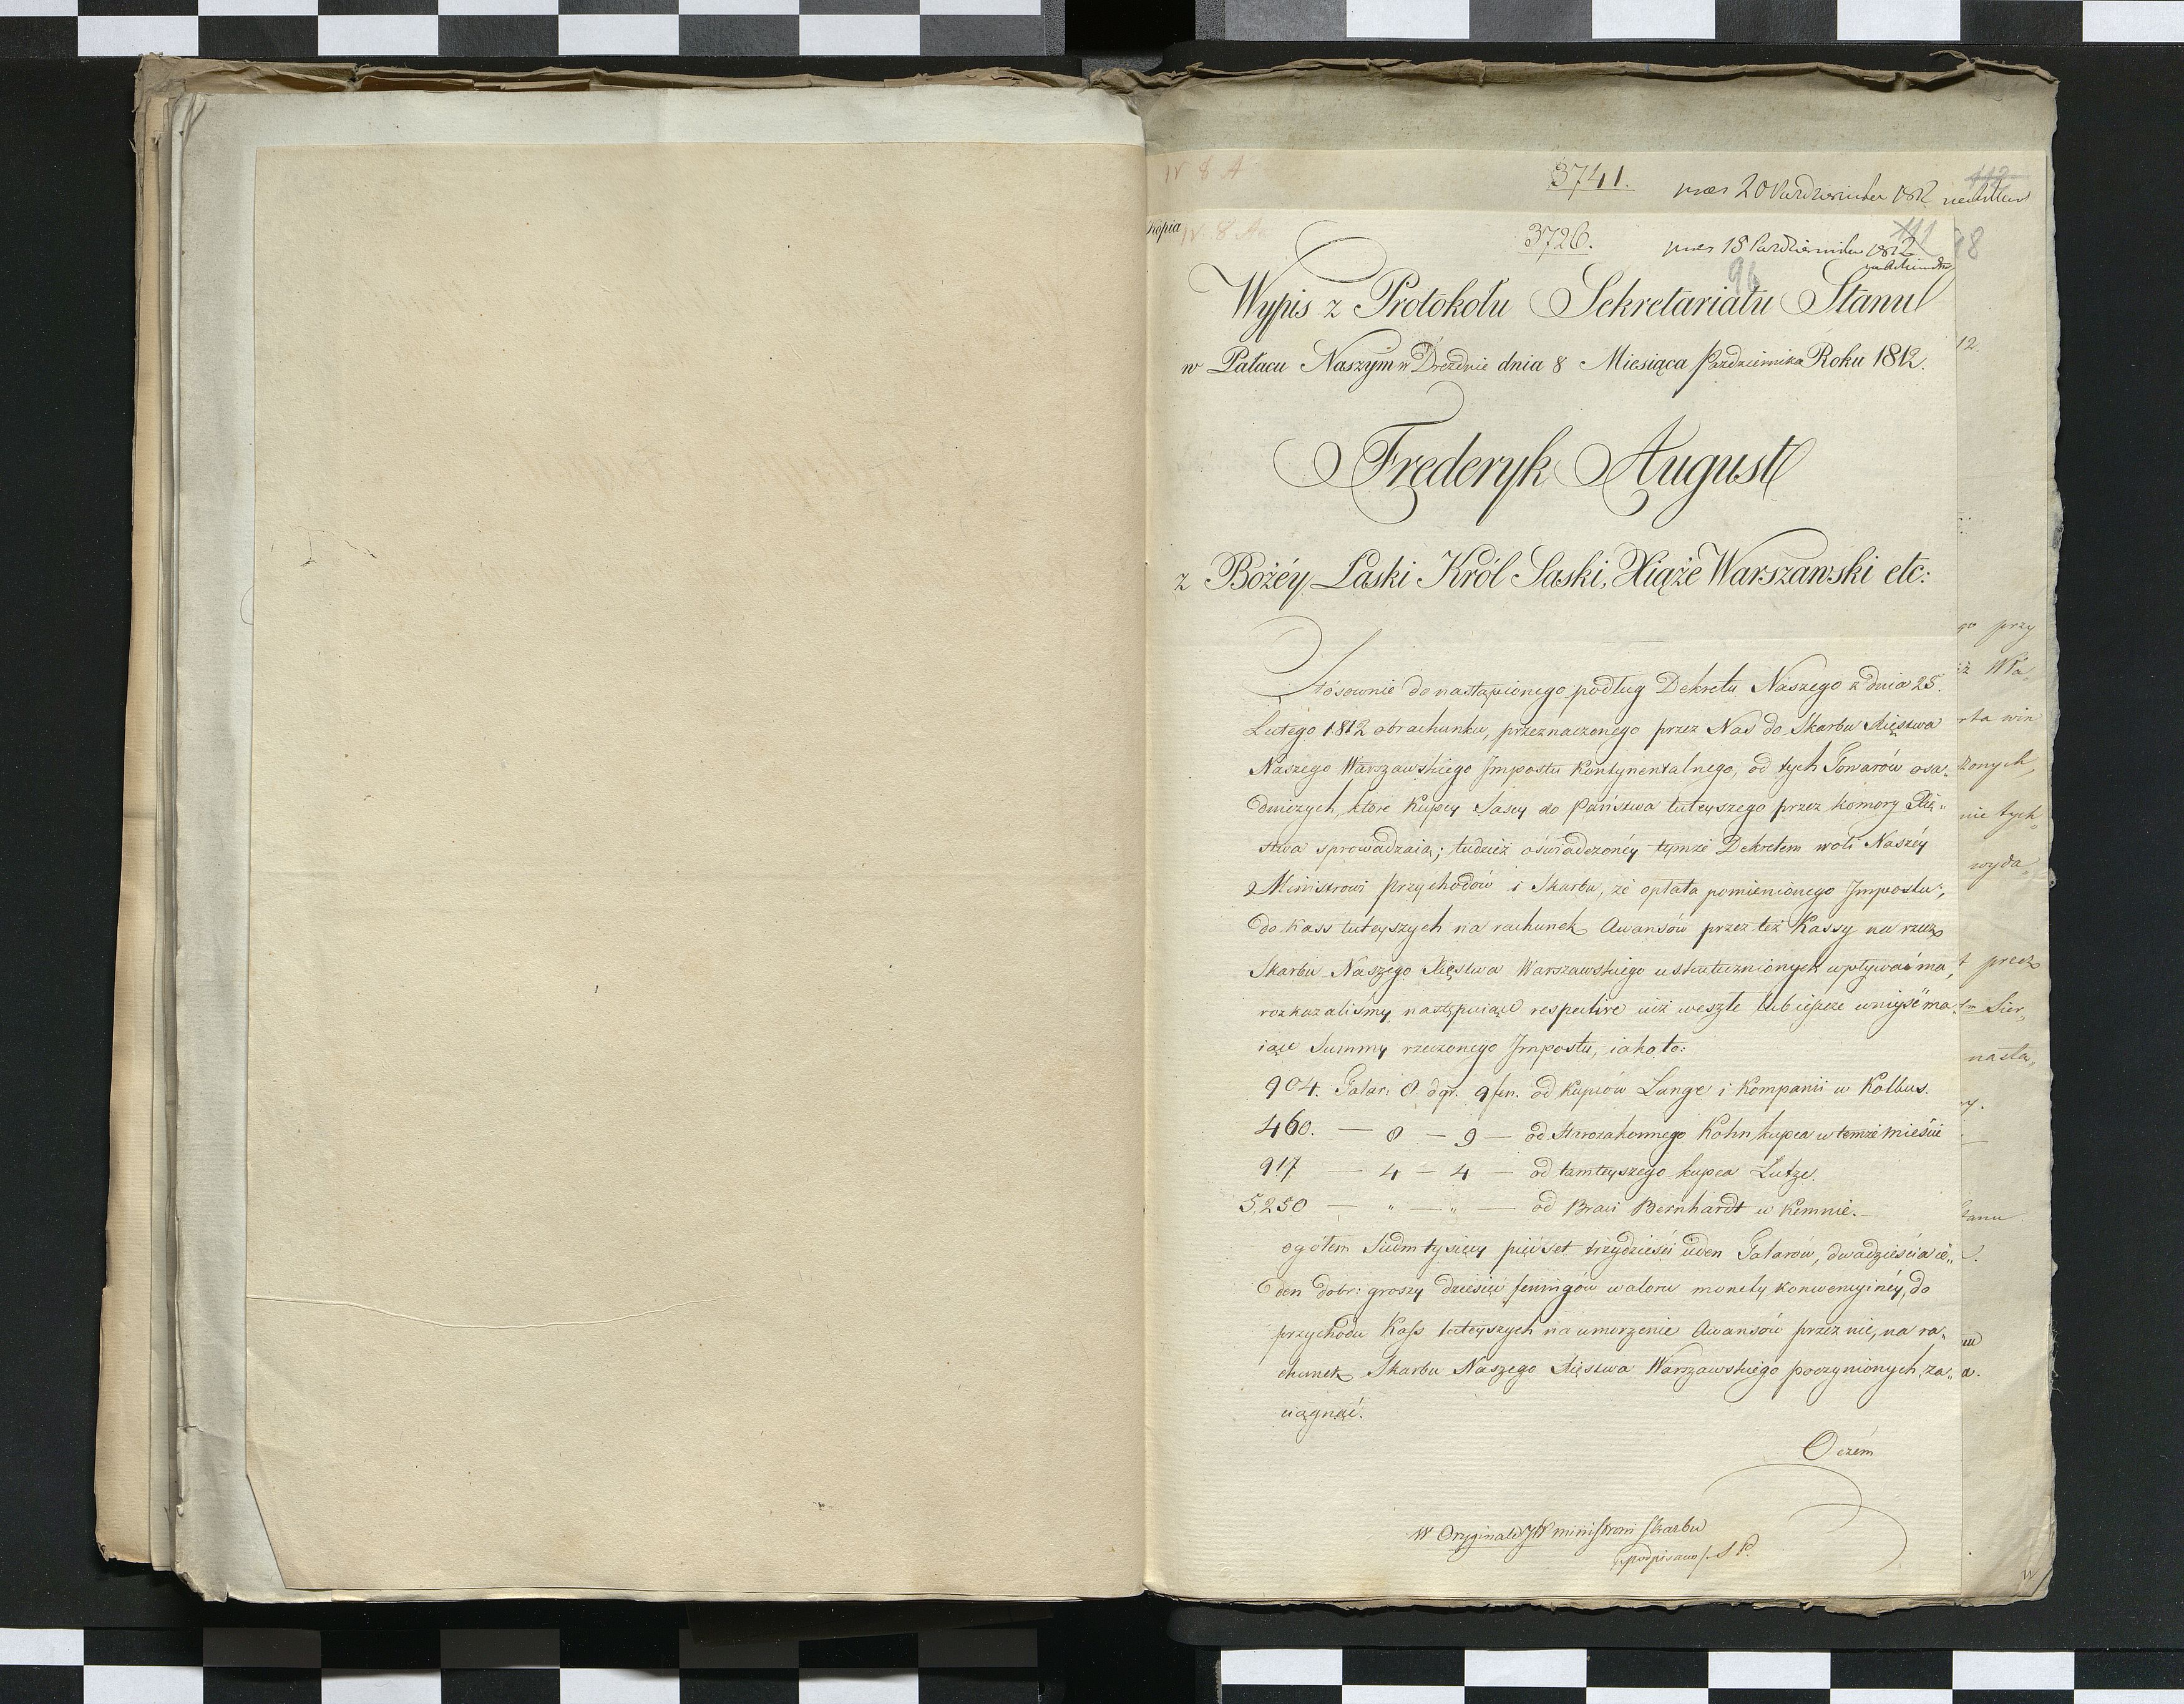 IV 8 A
3741.
praes 20 Października 1812
112
Kopia
IV 8 Aa
3726.
praes 15 Października 1812
111
98
96
Wypis z Protokołu Sekretariatu Stanu
w Pałacu Naszym w Dreźdnie dnia 8 Miesiąca Października Roku 1812.
12.
Frederyk August
z Bożéy Łaski Król Saski, Xiąże Warszawski etc:
Stósownie do nastąpionego podług Dekretu Naszego z dnia 25.
Lutego 1812 obrachunku, przeznaczonego przez Nas do Skarbu Xięstwa
Naszego Warszawskiego Impostu kontynentalnego, od tych Towarów osa-
dniczych, które kupcy Sascy do Państwa tuteyszego przez komory Xię„
stwa sprowadzaią; tudzież oświadczonéy tymże Dekretem woli Naszéy
Ministrowi Przychodów i Skarbu, że opłata pomienionego Impostu,
do kass tuteyszych na rachunek Awansów przez też Kassy na rzecz
Skarbu Naszego Xięstwa Warszawskiego uskutecznionych wpływać ma,
rozkazaliśmy następuiące respective iuż weszłe lub ieszcze wniyść ma„
iące Summy rzeczonego Impostu, iako to:
904. Talar: 8. dgr. 9 fen. od kupców Lange i Kompanii w Kotbus.
460. — 8 — 9 — od Starozakonnego Kohn kupca w temże mieście
917 — 4 — 4 — od tamteyszego kupca Lutze.
5,250 — „ — „ — od Braci Bernhardt w Kemnic.
ogółem Siedm tysięcy pięćset trzydzieści ieden Talarów, dwadzieścia ie„
den dobr: groszy dziesięć feningów waloru monety konwencyinéy, do
przychodu Kass tuteyszych na umorzenie Awansów przez nie, na ra„
chunek Skarbu Naszego Xięstwa Warszawskiego poczynionych, za„
ciągnąć.
O czém
W Oryginale JW ministrowi Skarbu
/podpisano/ S P.
go przy
iż Wła„
rta win
żonych,
nie tych„
wyda„
t przez
Sier„
nasta„
ry.
tanu
a.